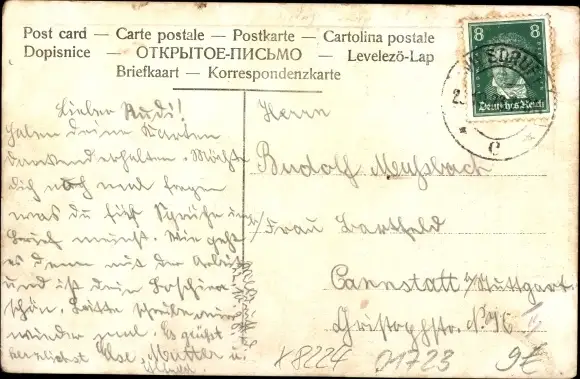 Post card — Carte postale — Postkarte — Cartolina postale
Dopisnice — ОТКРЫТОЕ-ПИСЬМО — Levelező-Lap
Briefkaart — Korrespondenzkarte
8 8
Deutsches Reich
c
Lieber Rudi!
Haben deine Karten
dankend erhalten. Möchte
dich noch mal fragen
was du für Sprüche
meinst. Wie geht
es denn mit der Arbeit
und ist dein
schön. Bitte schreibe mir
wieder mal. Es grüßt
herzlichst Else, Mutter u.
Herrn
Rudolf
Frau
Cannstatt b/Stuttgart
X8224 01723 9€